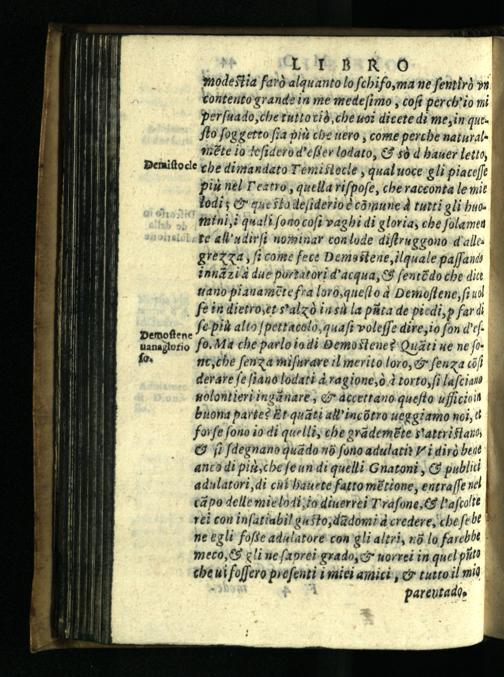 LIBRO
modestia farò alquanto lo schifo, ma ne sentirò vn
contento grande in me medesimo, cosi perch'io mi
persuado, che tutto ciò, che uoi dicete di me, in que-
sto soggetto sia più che uero, come perche natural-
mẽte io desidero d'esser lodato, & sò d'hauer letto,
Demistocle
che dimandato Temistocle, qual uoce gli piacesse
più nel Teatro, quella rispose, che racconta le mie
lodi; & questo desiderio è cõmune à tutti gli huo-
mini, i quali sono cosi vaghi di gloria, che solamen
te all'udirsi nominar con lode distruggono d'alle-
grezza, si come fece Demostene, ilquale passando
innãzi à due portatori d'acqua, & sentẽdo che dice
uano pianamẽte fra loro, questo à Demostene, si uol
se in dietro, et s'alzò in sù la pũta de piedi, p far di
Demostene
uanaglorio
so.
se più alto spettacolo, quasi volesse dire, io son d'es-
so. Ma che parlo io di Demostene? Quãti ue ne so-
no, che senza misurare il merito loro, & senza cõsi
derare se siano lodati à ragione, ò à torto, si lasciano
uolontieri ingãnare, & accettano questo ufficio in
buona parte? Et quãti all'incõtro ueggiamo noi, et
forse sono io di quelli, che grãdemẽte s'attristano,
& si sdegnano quãdo nõ sono adulati? Vi dirò bene
anco di più, che se un di quelli Gnatoni, & publici
adulatori, di cui hauete fatto mẽtione, entrasse nel
cãpo delle mie lodi, io diuerrei Trasone, & l'ascolte
rei con insatiabil gusto, dãdomi à credere, che se be
ne egli fosse adulatore con gli altri, nõ lo farebbe
meco, & gli ne saprei grado, & uorrei in quel pũto
che ui fossero presenti i miei amici, & tutto il mio
parentado.